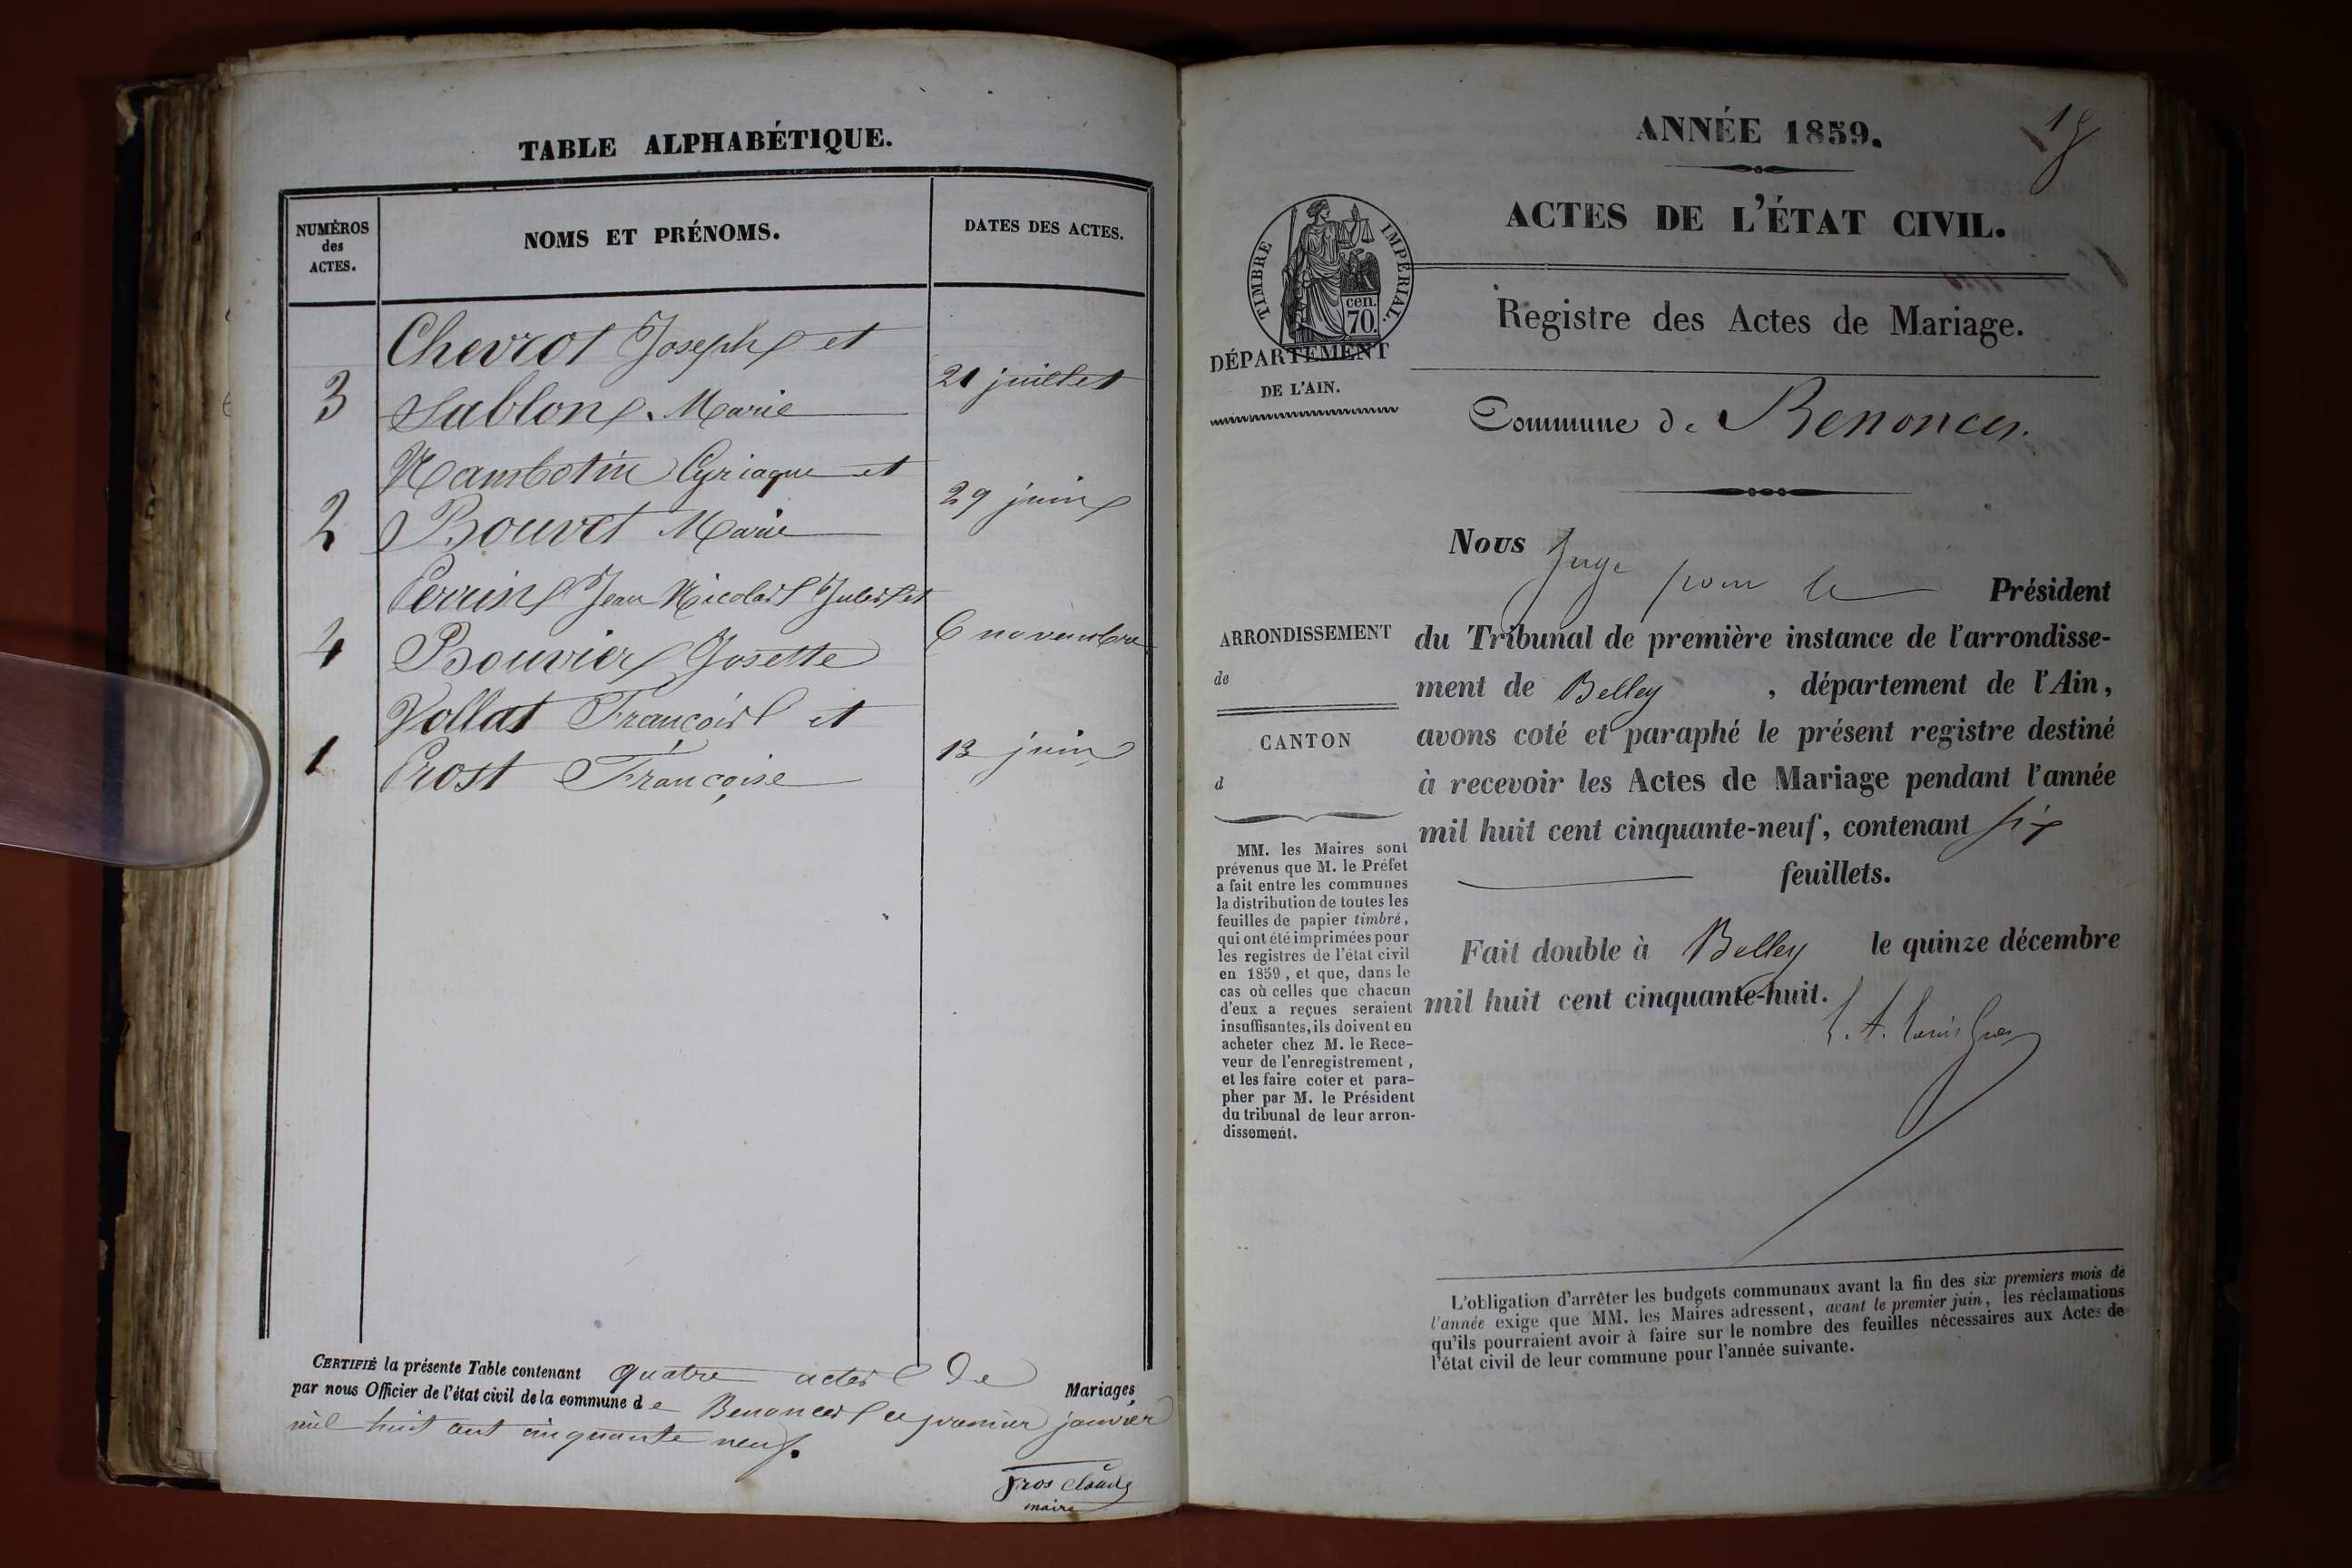 TABLE ALPHABÉTIQUE.
NUMÉROS
des
ACTES.
NOMS ET PRÉNOMS.
DATES DES ACTES.
Chevrot Joseph et
3
Sublon Marie
21 juillet
Nambotin Cyriaque et
2
Bouvet Marie
29 juin
Perrin Jean Nicolas Jules et
4
Bouvier Josette
6 novembre
Vollat François et
1
Prost Françoise
13 juin
CERTIFIÉ la présente Table contenant quatre actes de Mariages
par nous Officier de l'état civil de la commune de Benonces ce premier janvier
mil huit cent cinquante neuf.
Claude
maire
ANNÉE 1859.
ACTES DE L'ÉTAT CIVIL.
TIMBRE IMPÉRIAL.
cen.
70.
DÉPARTEMENT
DE L'AIN.
Registre des Actes de Mariage.
Commune de Benonces.
Nous Juge pour le Président
du Tribunal de première instance de l'arrondisse-
ment de Belley, département de l'Ain,
avons coté et paraphé le présent registre destiné
à recevoir les Actes de Mariage pendant l'année
mil huit cent cinquante-neuf, contenant six
feuillets.
Fait double à Belley le quinze décembre
mil huit cent cinquante-huit.
ARRONDISSEMENT
de
CANTON
d
MM. les Maires sont
prévenus que M. le Préfet
a fait entre les communes
la distribution de toutes les
feuilles de papier timbré,
qui ont été imprimées pour
les registres de l'état civil
en 1859, et que, dans le
cas où celles que chacun
d'eux a reçues seraient
insuffisantes, ils doivent en
acheter chez M. le Rece-
veur de l'enregistrement,
et les faire coter et para-
pher par M. le Président
du tribunal de leur arron-
dissement.
L'obligation d'arrêter les budgets communaux avant la fin des six premiers mois de
l'année exige que MM. les Maires adressent, avant le premier juin, les réclamations
qu'ils pourraient avoir à faire sur le nombre des feuilles nécessaires aux Actes de
l'état civil de leur commune pour l'année suivante.